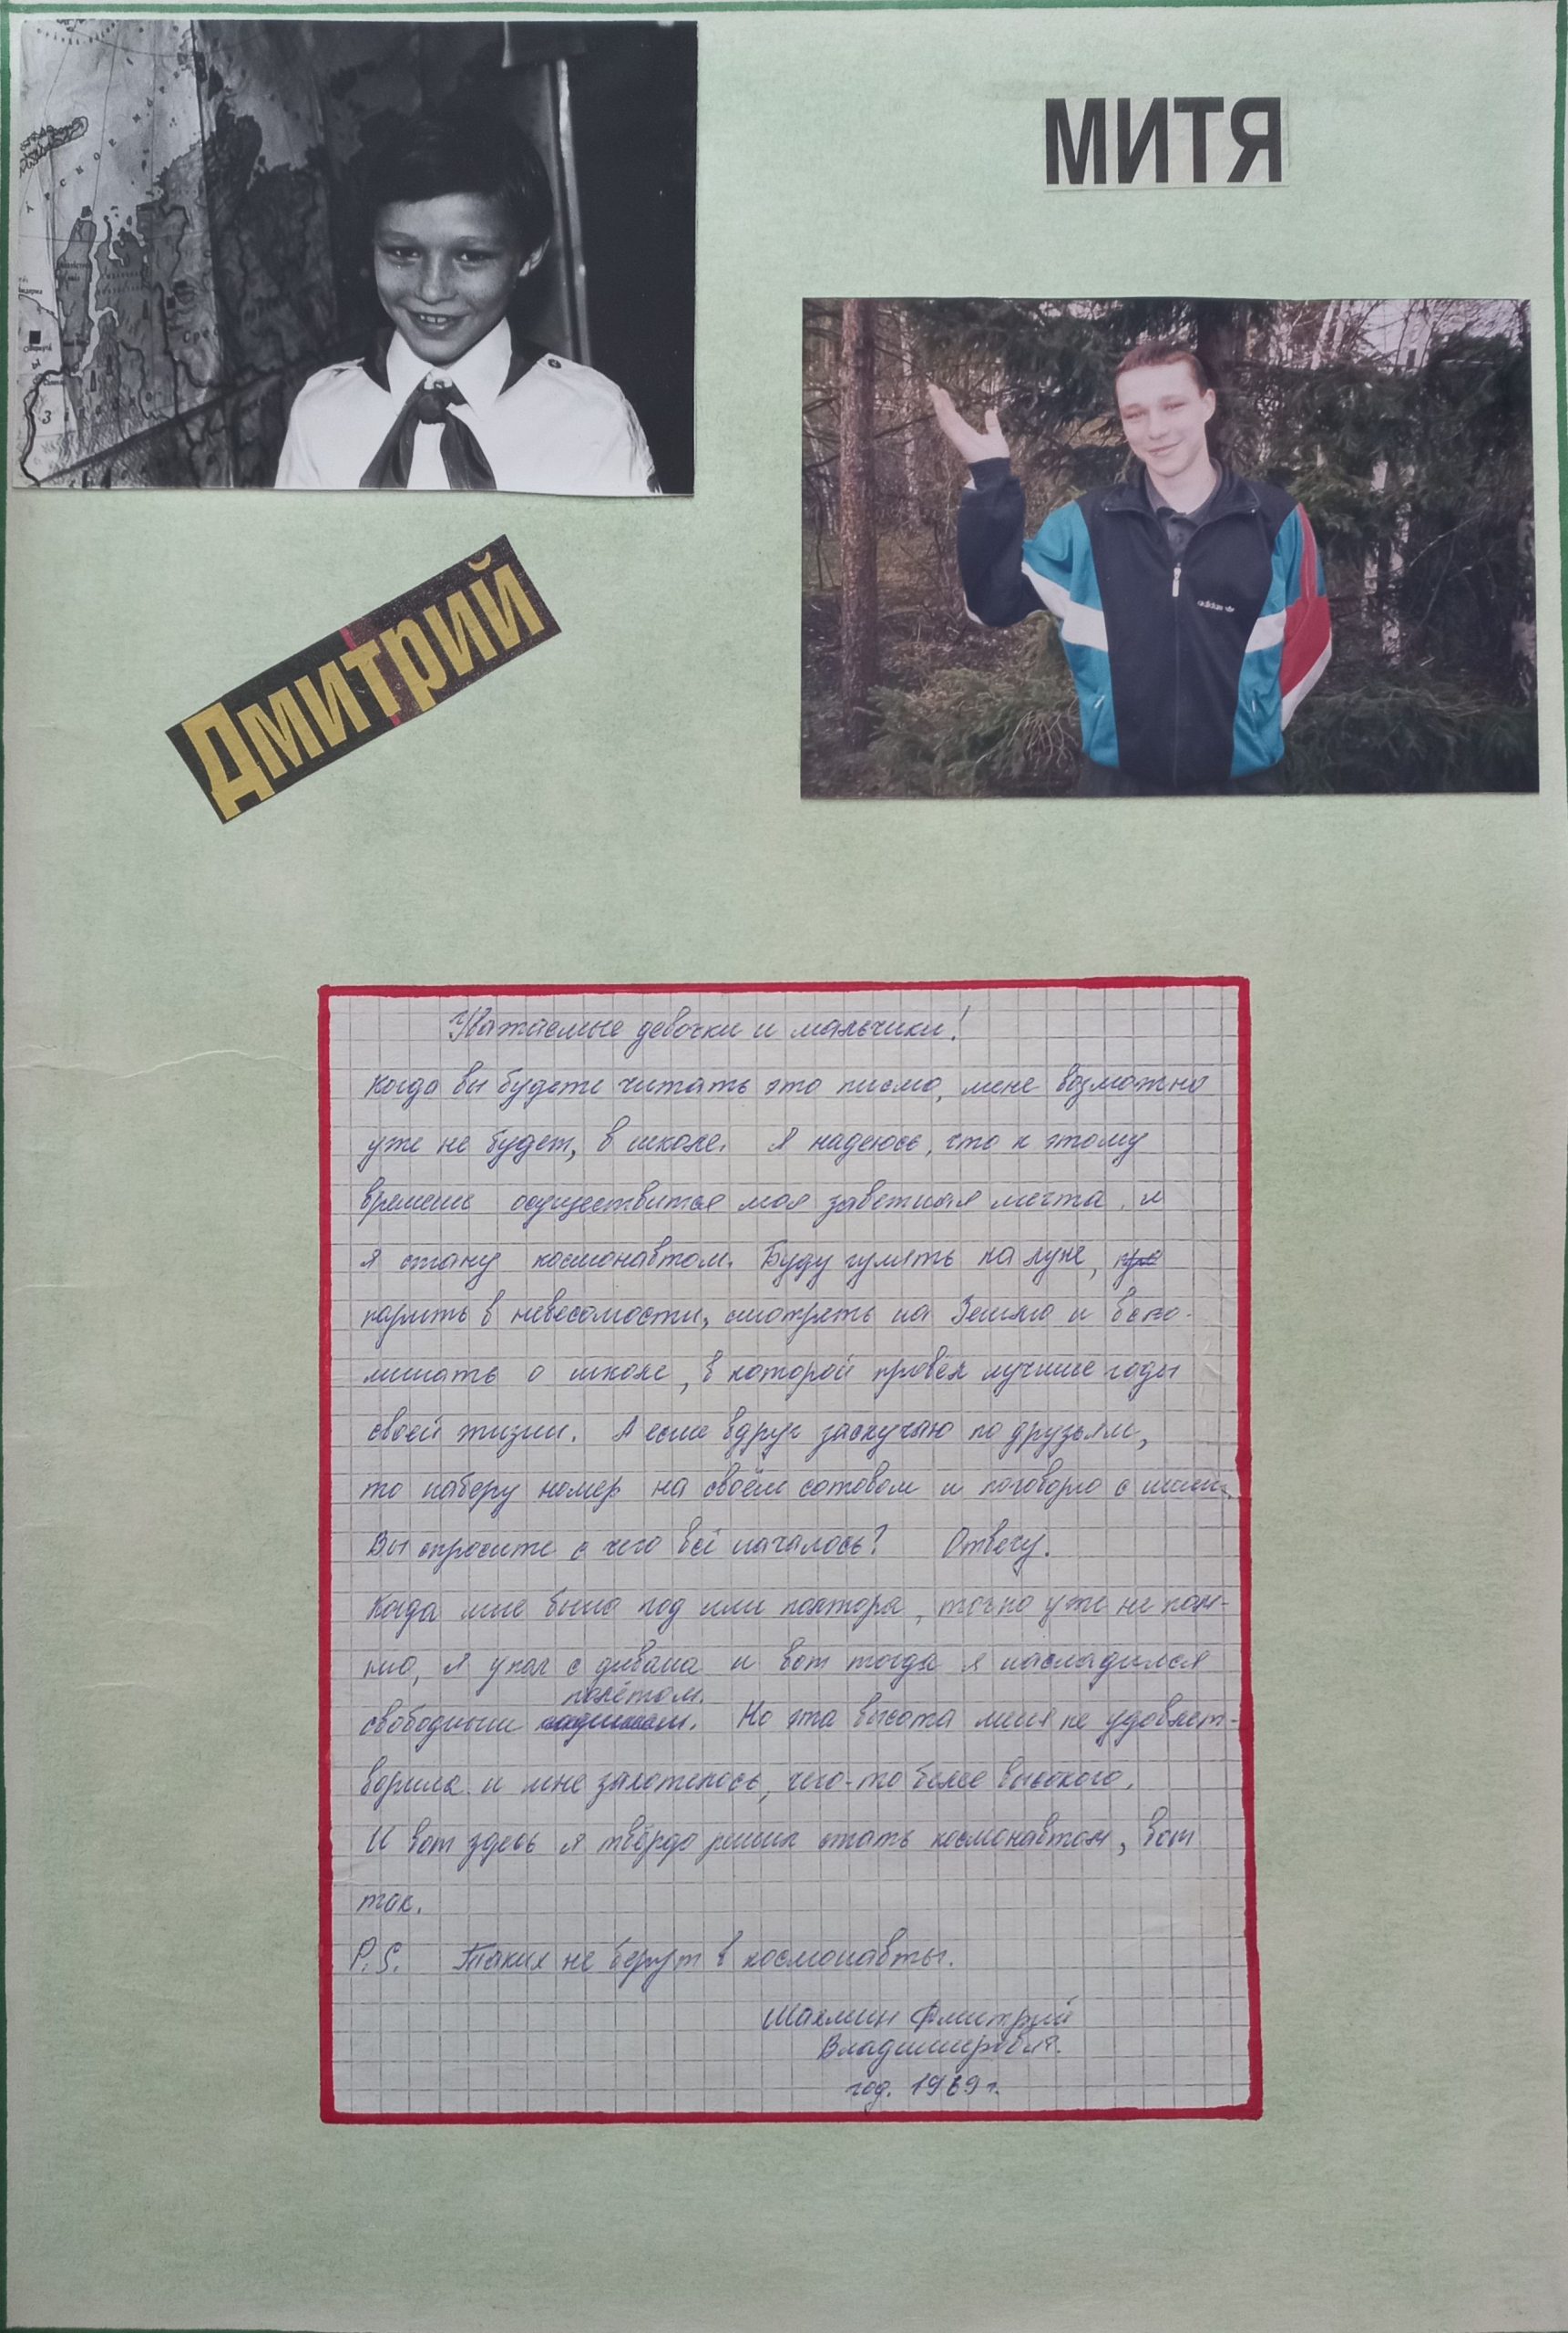 МИТЯ
adidas
Дмитрий
Уважаемые девочки и мальчики!
Когда вы будете читать это письмо, меня возможно
уже не будет, в школе. Я надеюсь, что к этому
времени осуществится моя заветная мечта, и
я стану космонавтом. Буду гулять на луне,
парить в невесомости, смотреть на Землю и вспо-
минать о школе, в которой провёл лучшие годы
своей жизни. А если вдруг заскучаю по друзьям,
то наберу номер на своём сотовом и поговорю с ними.
Вы спросите с чего всё началось? Отвечу.
Когда мне было год или полтора, точно уже не пом-
ню, я упал с дивана и вот тогда я насладился
свободным полётом. Но эта высота меня не удовлет-
ворила и мне захотелось, чего-то более высокого.
И вот здесь я твёрдо решил стать космонавтом, вот
так.
P.S. Таких не берут в космонавты.
Дмитрий
год. 1969 г.